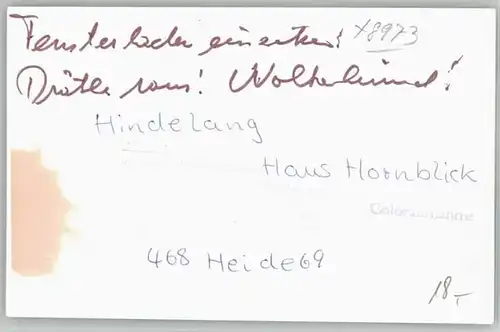 Fensterläden einsetzen! x8973
Drähte raus! Wolkenhimmel!
Hindelang
Haus Hornblick
468 Heide69
18,-